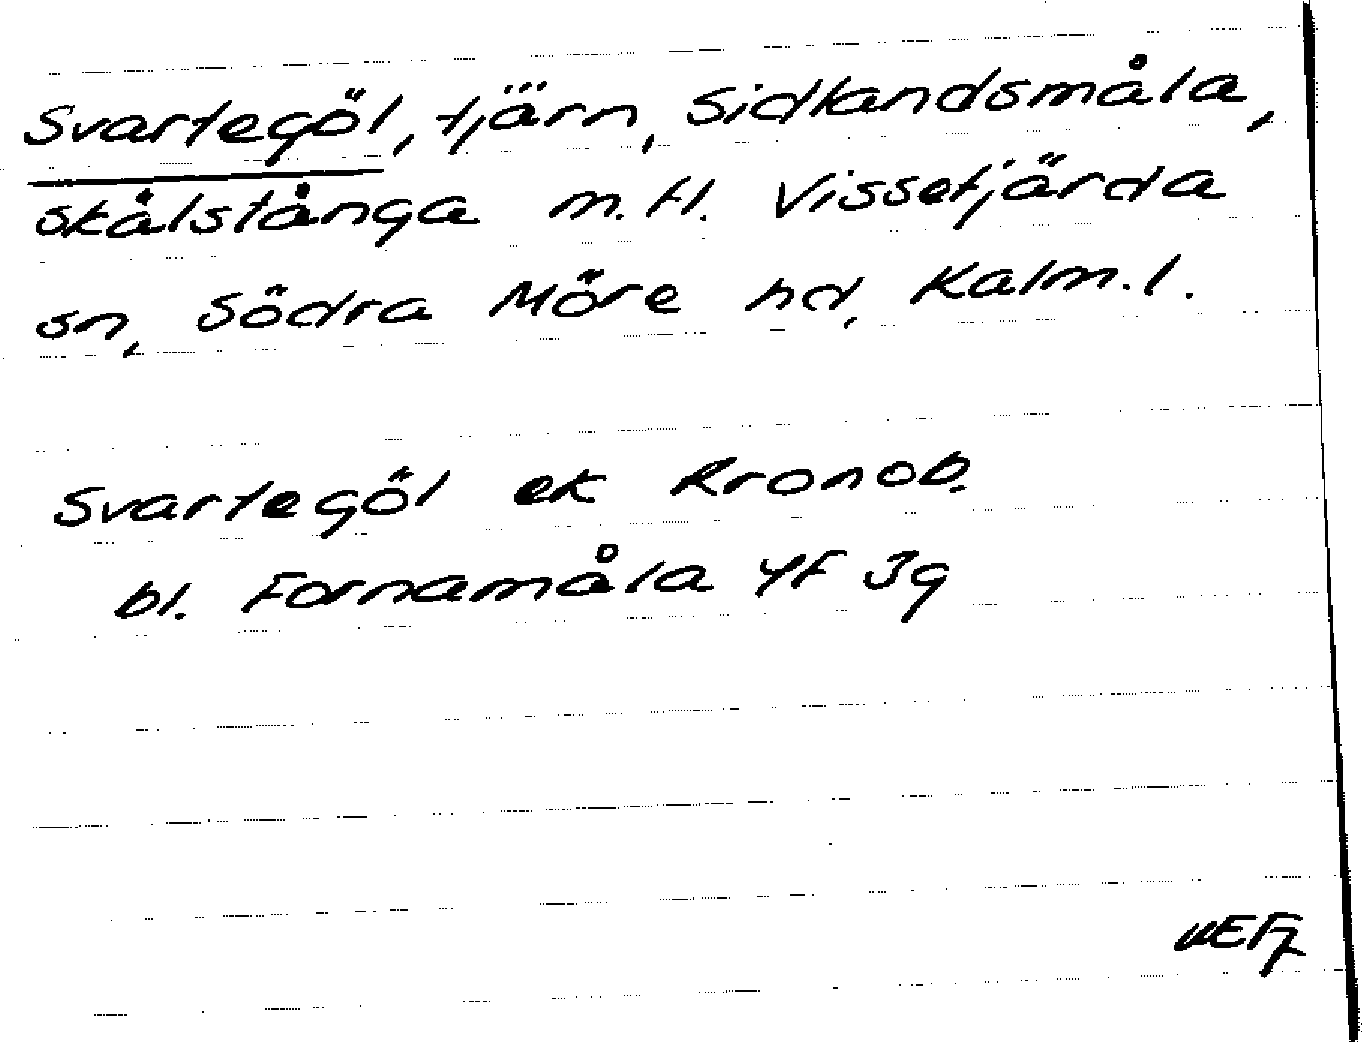 Svartegöl, tjärn, Sidlandsmåla,
skålstånga m.fl. Vissefjärda
sn, Södra Möre hd, Kalm.l.
Svartegöl ek Kronob.
bl. Fornamåla